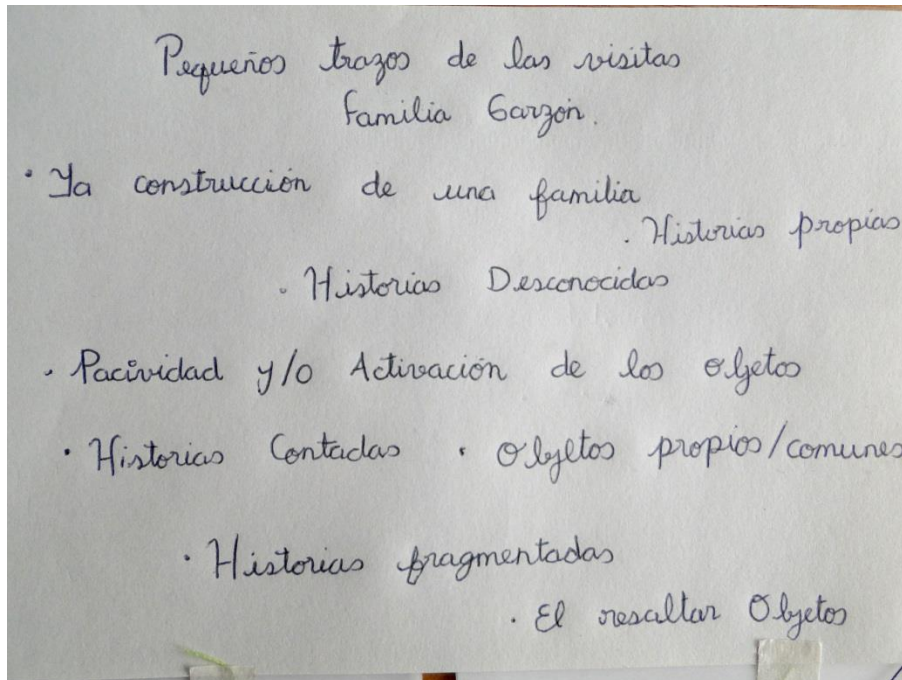 Pequeños trazos de las visitas
Familia Garzón.
· La construcción de una familia
· Historias propias
· Historias Desconocidas
· Pacividad y/o Activación de los objetos
· Historias Contadas · Objetos propios/comunes
· Historias fragmentadas
· El resaltar Objetos